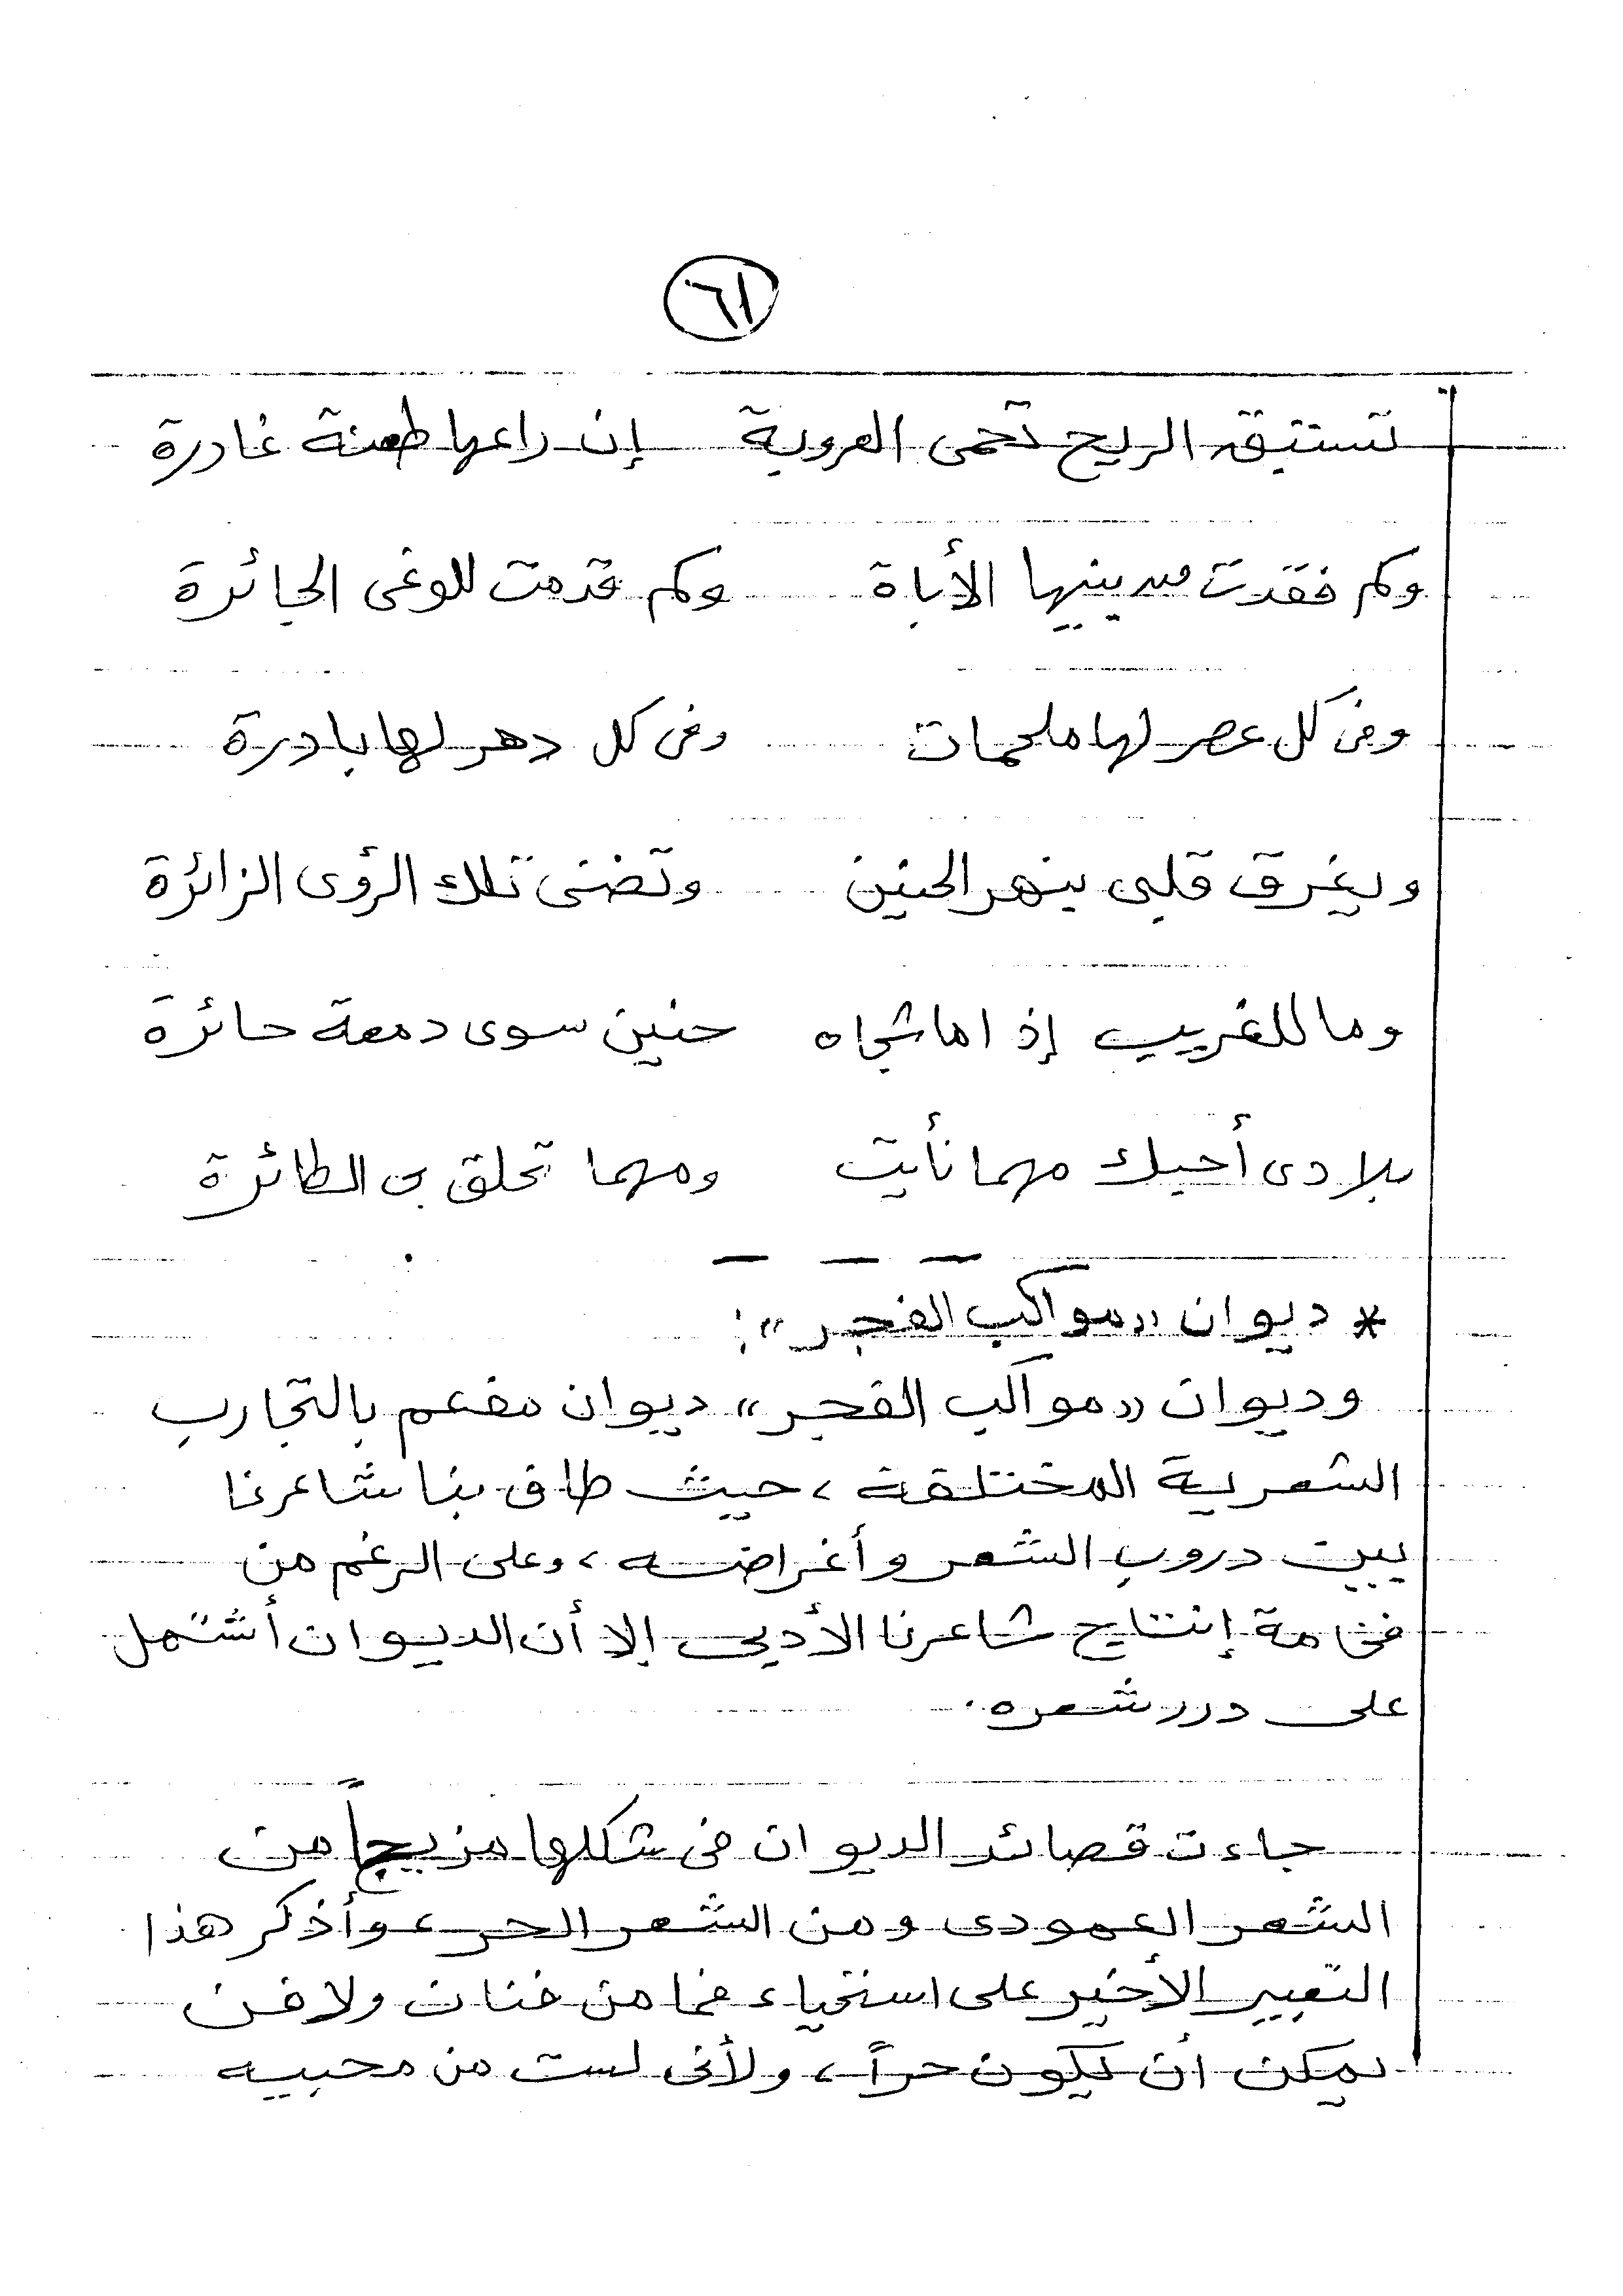 ٦١
تستبق الريح تحمى العروبة إن راعها طعنة غادرة
وكم فقدت من بنيها الأباة وكم قدمت للوغى الجائرة
وفى كل عصر لها ملحمات وفى كل دهر لها بادرة
ويغرق قلبى بنهر الحنين وتضنى تلك الرؤى الزائرة
وما للغريب إذا ما شجاه حنين سوى دمعة حائرة
بلادى أحبك مهما نأيت ومهما تحلق بى الطائرة
* ديوان «مواكب الفجر»:
وديوان «مواكب الفجر» ديوان مفعم بالتجارب
الشعرية المختلفة، حيث طاف بنا شاعرنا
بين دروب الشعر وأغراضه، وعلى الرغم من
فخامة إنتاج شاعرنا الأدبى إلا أن الديوان أشتمل
على درر شعره.
جاءت قصائد الديوان فى شكلها مزيجاً من
الشعر العمودى ومن الشعر الحر، وأذكر هذا
التعبير الأخير على استحياء فما من فنان ولا فن
يمكن أن يكون حراً، ولأنى لست من محبيه